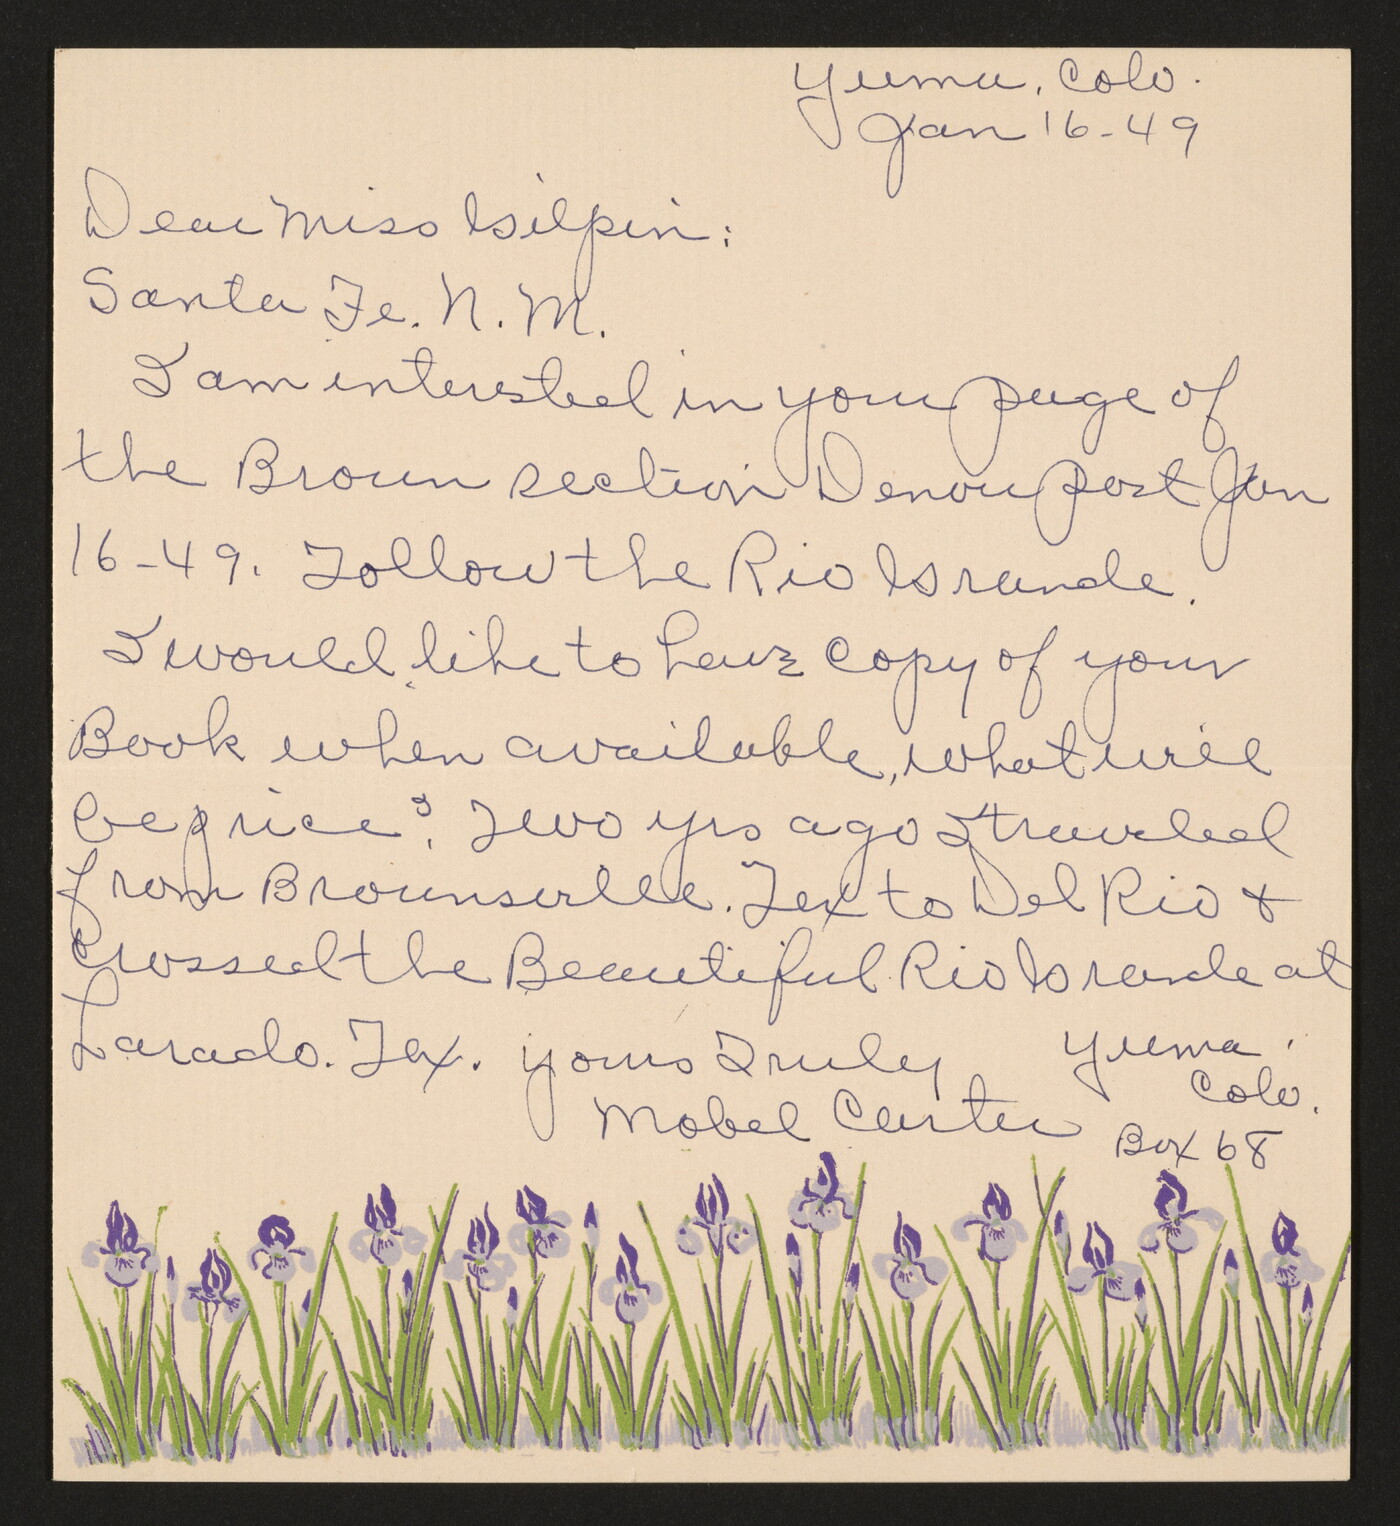 Yuma, Colo.
Jan 16-49
Dear Miss Gilpin:
Santa Fe. N. M.
I am interested in your page of
the Broun section Denver Post Jan
16-49. Follow the Rio Grande.
I would like to have copy of your
Book when available, what will
be price? Two yrs ago I traveled
from Brounsville. Tex to Del Rio &
crossed the Beautiful Rio Grande at
Larado. Tex. yours Truly
Mabel Carter
Yuma.
Colo.
Box 68